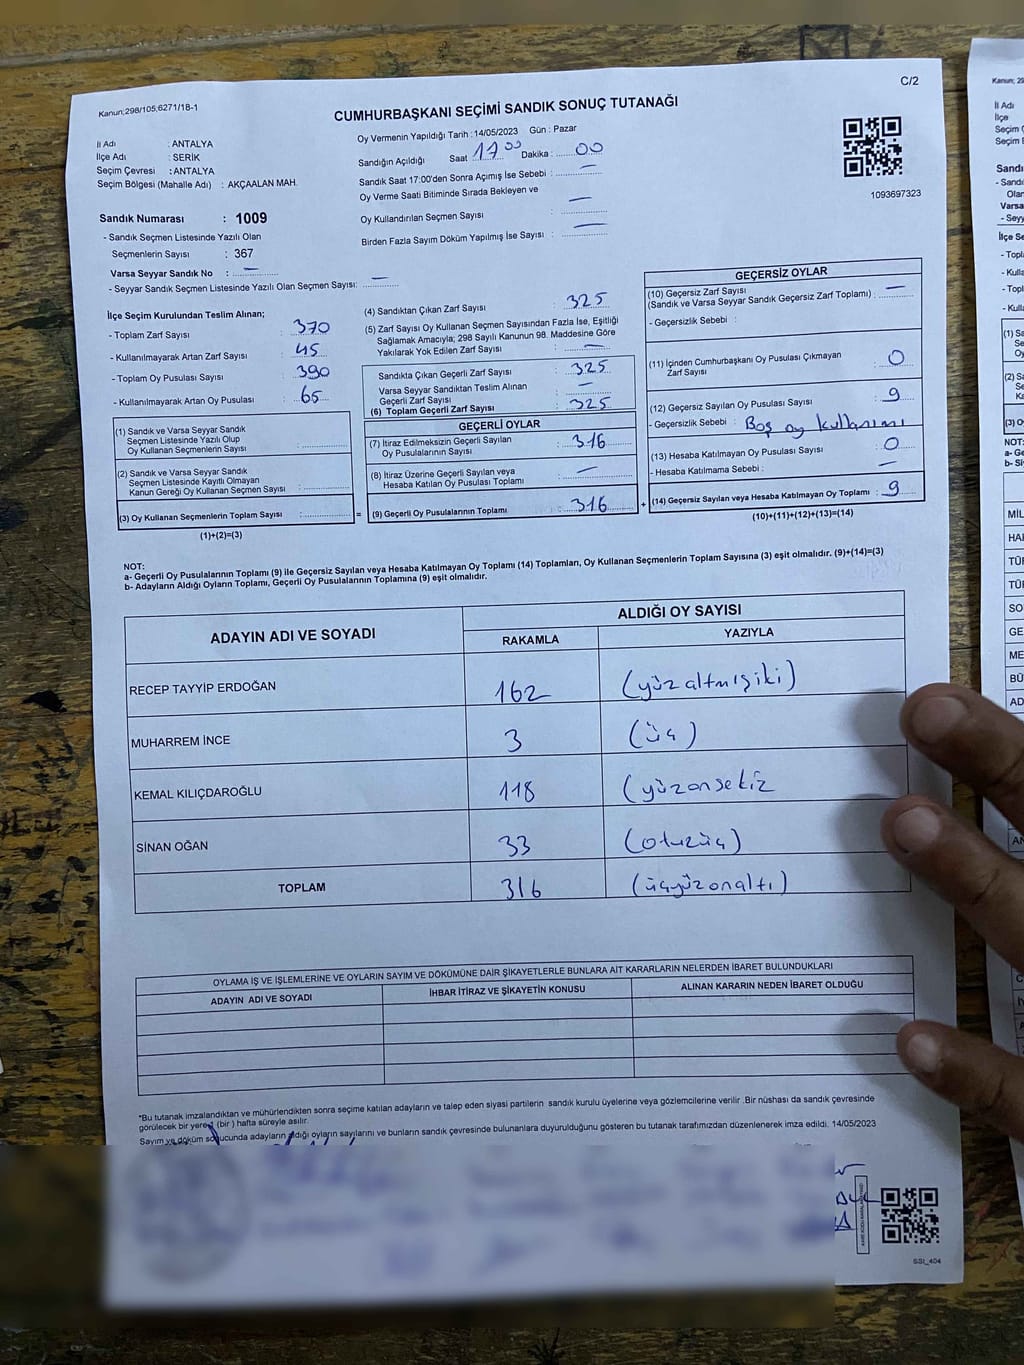 C/2
Kanun;298/105;6271/18-1
CUMHURBAŞKANI SEÇİMİ SANDIK SONUÇ TUTANAĞI
İl Adı : ANTALYA
İlçe Adı : SERİK
Seçim Çevresi : ANTALYA
Seçim Bölgesi (Mahalle Adı) : AKÇAALAN MAH.
Oy Vermenin Yapıldığı Tarih : 14/05/2023 Gün : Pazar
Sandığın Açıldığı Saat 17 00 Dakika : 00
Sandık Saat 17:00'den Sonra Açımış İse Sebebi : —
Oy Verme Saati Bitiminde Sırada Bekleyen ve
Oy Kullandırılan Seçmen Sayısı : —
Birden Fazla Sayım Döküm Yapılmış İse Sayısı : —
1093697323
Sandık Numarası : 1009
- Sandık Seçmen Listesinde Yazılı Olan
Seçmenlerin Sayısı : 367
Varsa Seyyar Sandık No : —
- Seyyar Sandık Seçmen Listesinde Yazılı Olan Seçmen Sayısı: —
İlçe Seçim Kurulundan Teslim Alınan;
- Toplam Zarf Sayısı : 370
- Kullanılmayarak Artan Zarf Sayısı : 45
- Toplam Oy Pusulası Sayısı : 390
- Kullanılmayarak Artan Oy Pusulası : 65
(1) Sandık ve Varsa Seyyar Sandık
Seçmen Listesinde Yazılı Olup
Oy Kullanan Seçmenlerin Sayısı :
(2) Sandık ve Varsa Seyyar Sandık
Seçmen Listesinde Kayıtlı Olmayan
Kanun Gereği Oy Kullanan Seçmen Sayısı :
(3) Oy Kullanan Seçmenlerin Toplam Sayısı : =
(1)+(2)=(3)
(4) Sandıktan Çıkan Zarf Sayısı : 325
(5) Zarf Sayısı Oy Kullanan Seçmen Sayısından Fazla İse, Eşitliği
Sağlamak Amacıyla; 298 Sayılı Kanunun 98. Maddesine Göre
Yakılarak Yok Edilen Zarf Sayısı : —
Sandıkta Çıkan Geçerli Zarf Sayısı : 325
Varsa Seyyar Sandıktan Teslim Alınan
Geçerli Zarf Sayısı : —
(6) Toplam Geçerli Zarf Sayısı : 325
GEÇERLİ OYLAR
(7) İtiraz Edilmeksizin Geçerli Sayılan
Oy Pusulalarının Sayısı : 316
(8) İtiraz Üzerine Geçerli Sayılan veya
Hesaba Katılan Oy Pusulası Toplamı : —
(9) Geçerli Oy Pusulalarının Toplamı : 316 +
GEÇERSİZ OYLAR
(10) Geçersiz Zarf Sayısı
(Sandık ve Varsa Seyyar Sandık Geçersiz Zarf Toplamı) : —
- Geçersizlik Sebebi :
(11) İçinden Cumhurbaşkanı Oy Pusulası Çıkmayan
Zarf Sayısı : 0
(12) Geçersiz Sayılan Oy Pusulası Sayısı : 9
- Geçersizlik Sebebi : Boş oy kullanımı
(13) Hesaba Katılmayan Oy Pusulası Sayısı : 0
- Hesaba Katılmama Sebebi : —
(14) Geçersiz Sayılan veya Hesaba Katılmayan Oy Toplamı : 9
(10)+(11)+(12)+(13)=(14)
NOT:
a- Geçerli Oy Pusulalarının Toplamı (9) ile Geçersiz Sayılan veya Hesaba Katılmayan Oy Toplamı (14) Toplamları, Oy Kullanan Seçmenlerin Toplam Sayısına (3) eşit olmalıdır. (9)+(14)=(3)
b- Adayların Aldığı Oyların Toplamı, Geçerli Oy Pusulalarının Toplamına (9) eşit olmalıdır.
ADAYIN ADI VE SOYADI ALDIĞI OY SAYISI
RAKAMLA YAZIYLA
RECEP TAYYİP ERDOĞAN 162 (yüzaltmışiki)
MUHARREM İNCE 3 (üç)
KEMAL KILIÇDAROĞLU 118 (yüzonsekiz
SİNAN OĞAN 33 (otuzüç)
TOPLAM 316 (üçyüzonaltı)
OYLAMA İŞ VE İŞLEMLERİNE VE OYLARIN SAYIM VE DÖKÜMÜNE DAİR ŞİKAYETLERLE BUNLARA AİT KARARLARIN NELERDEN İBARET BULUNDUKLARI
ADAYIN ADI VE SOYADI İHBAR İTİRAZ VE ŞİKAYETİN KONUSU ALINAN KARARIN NEDEN İBARET OLDUĞU
*Bu tutanak imzalandıktan ve mühürlendikten sonra seçime katılan adayların ve talep eden siyasi partilerin sandık kurulu üyelerine veya gözlemcilerine verilir .Bir nüshası da sandık çevresinde
görülecek bir yere 1 (bir ) hafta süreyle asılır.
Sayım ve döküm sonucunda adayların aldığı oyların sayılarını ve bunların sandık çevresinde bulunanlara duyurulduğunu gösteren bu tutanak tarafımızdan düzenlenerek imza edildi. 14/05/2023
SSI_404